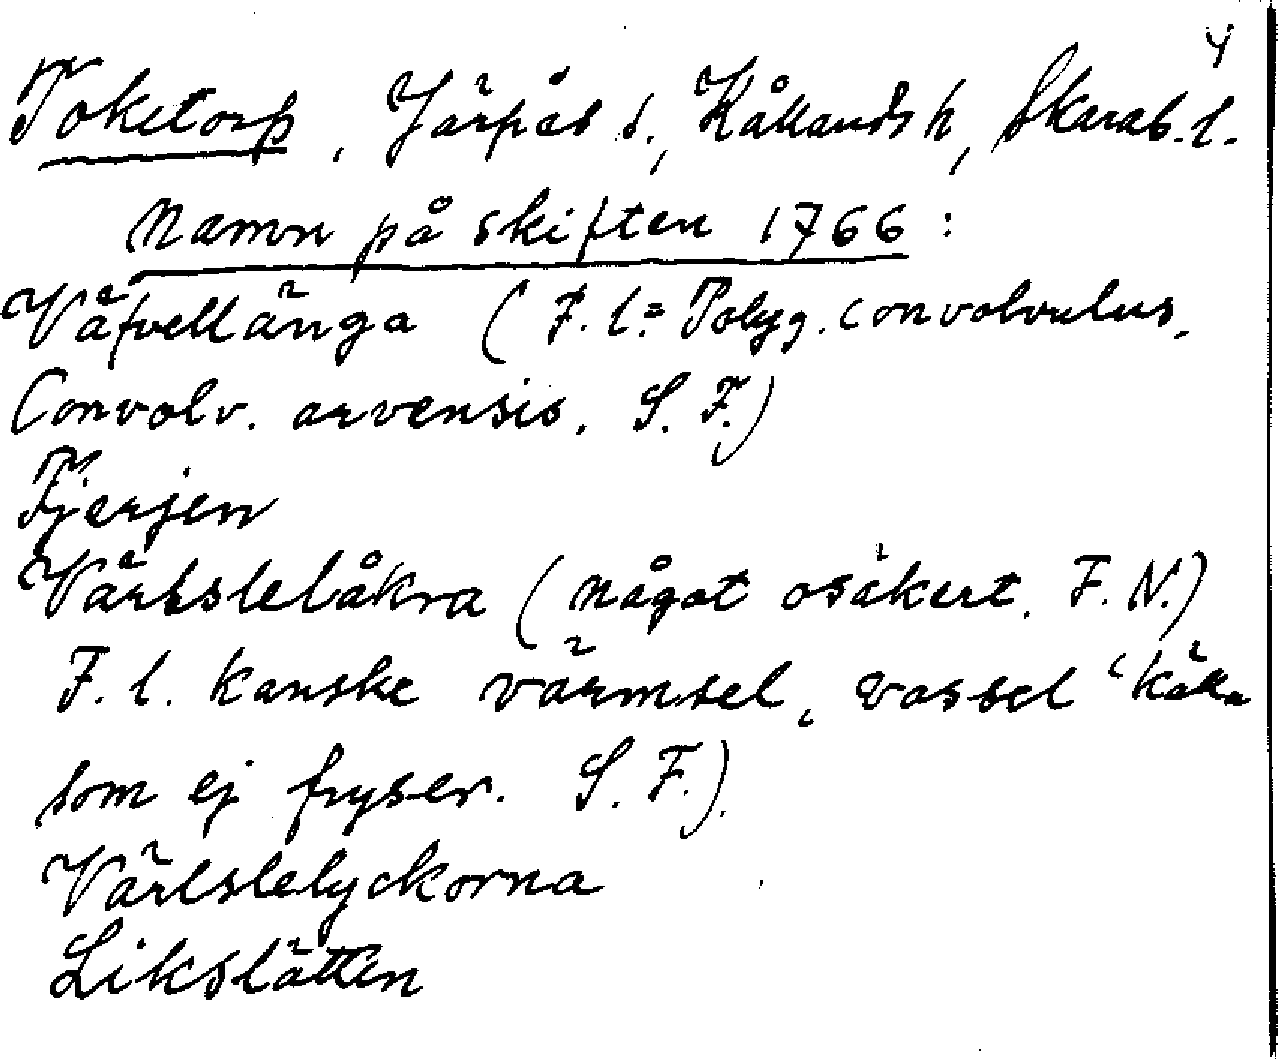 4
Toketorp, Järpås s., Kållands h, Skarab. l.
Namn på skiften 1766:
Väfvellänga (F. l. = Polyg. convolvulus,
Convolv. arvensis. S. F.)
Fjerjen
Värlslelåkra (något osäkert. F. N.)
F. l. kanske värmsel, vassel 'källa
som ej fryser. S. F.).
Värlslelyckorna
Likslätten